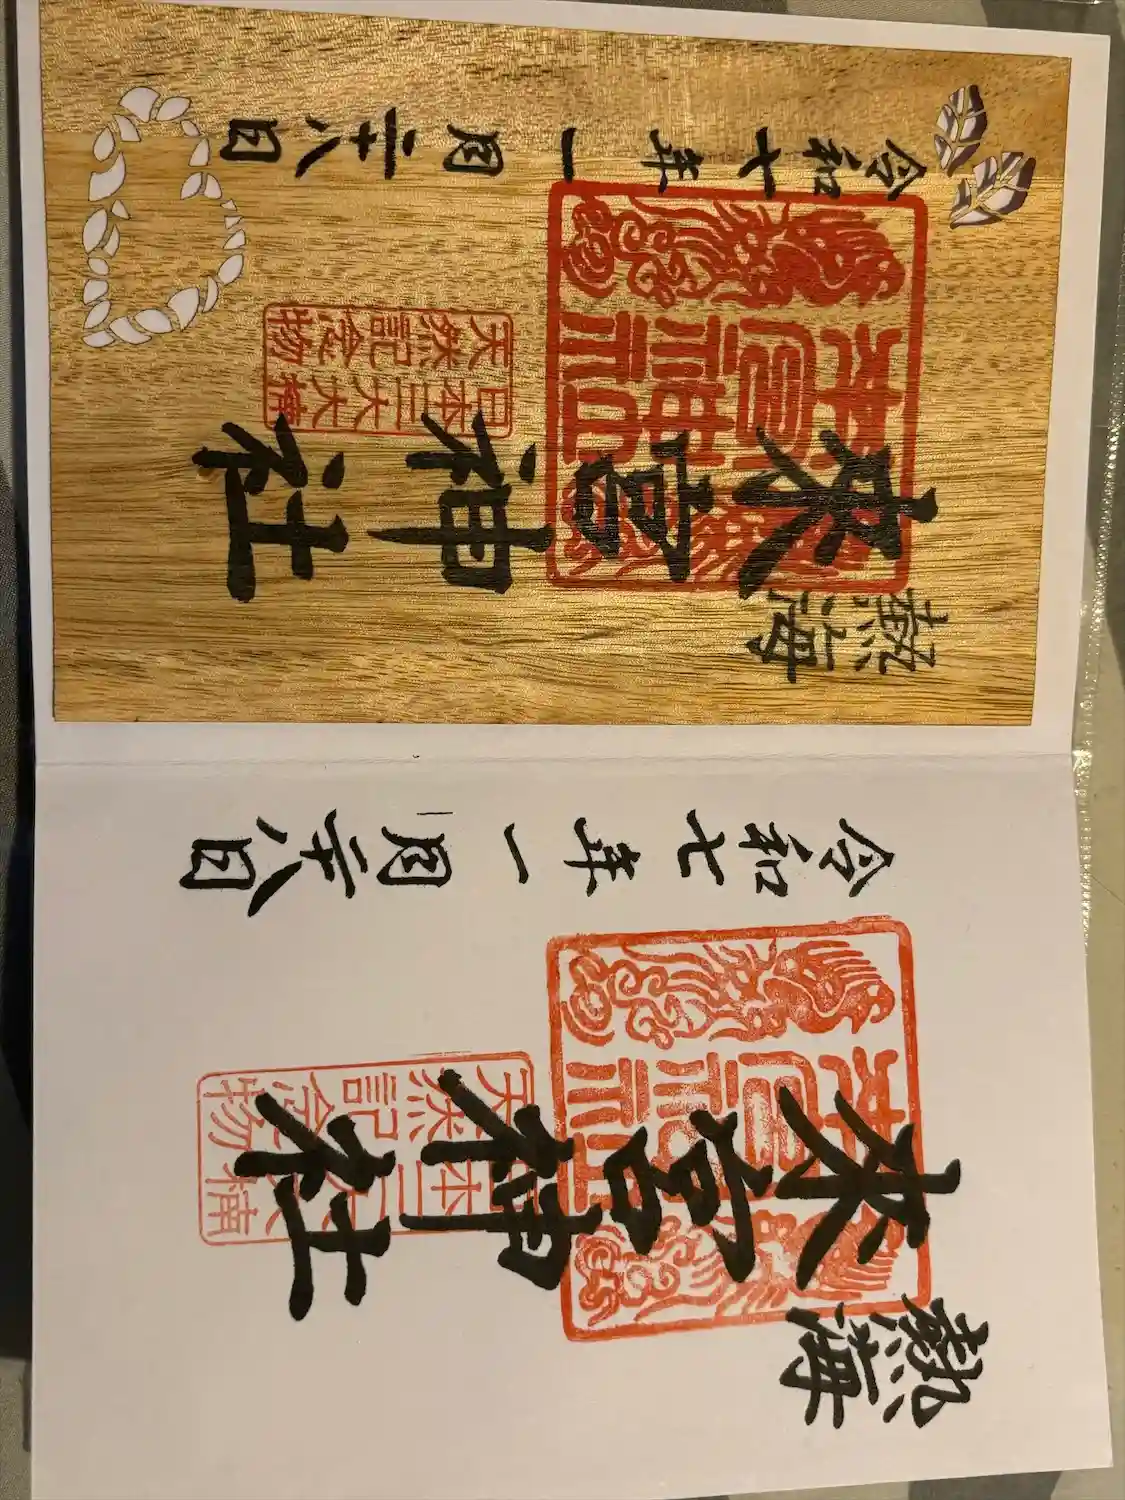 熱海
来宮神社
來宮神社
日本三大大楠
天然記念物
令和七年一月二十八日
熱海
来宮神社
來宮神社
日本三大大楠
天然記念物
令和七年一月二十八日